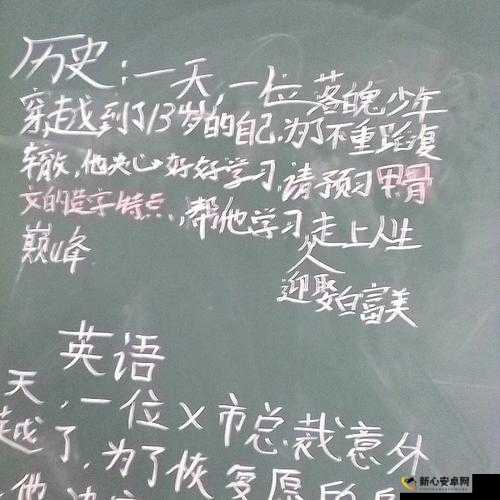 历史：一天，一位落魄少年
穿越到了13岁的自己，为了不重蹈复
辙，他决心好好学习，请预习甲骨
文的造字特点，帮他学习，走上人生
巅峰
迎娶白富美
英语
天，一位X市总裁意外
越了，为了恢复原
他
新心安卓网